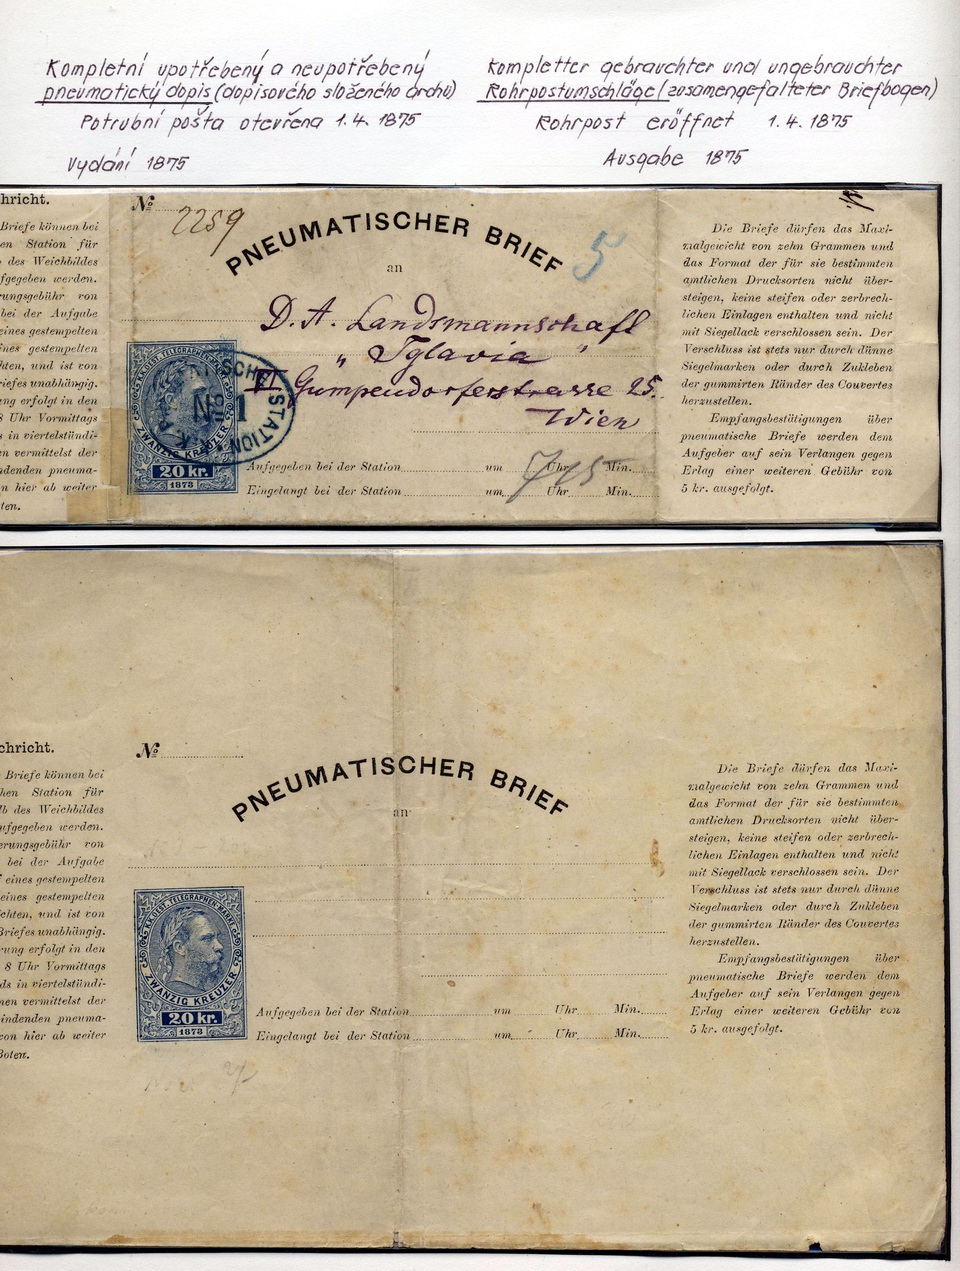 Kompletní upotřebený a neupotřebený
pneumatický dopis (dopisového složeného archu)
Potrubní pošta otevřena 1.4.1875
Vydání 1875
Kompletter gebrauchter und ungebrauchter
Rohrpostumschläge (zusamengefalteter Briefbogen)
Rohrpost eröffnet 1.4.1875
Ausgabe 1875
hricht.
Briefe können bei
en Station für
des Weichbildes
fgegeben werden.
rungsgebühr von
bei der Aufgabe
eines gestempelten
ines gestempelten
hten, und ist von
riefes unabhängig.
ung erfolgt in den
8 Uhr Vormittags
s in viertelstündi-
en vermittelst der
ndenden pneuma-
n hier ab weiter
ten.
№ 2259
PNEUMATISCHER BRIEF
5
an
D. A. Landsmannschaft
„ Iglavia "
VI Gumpendorferstrasse 25.
Wien
ZWANZIG KREUZER
20 kr.
1873
Aufgegeben bei der Station um Uhr Min.
Eingelangt bei der Station um Uhr Min.
Die Briefe dürfen das Maxi-
malgewicht von zehn Grammen und
das Format der für sie bestimmten
amtlichen Drucksorten nicht über-
steigen, keine steifen oder zerbrech-
lichen Einlagen enthalten und nicht
mit Siegellack verschlossen sein. Der
Verschluss ist stets nur durch dünne
Siegelmarken oder durch Zukleben
der gummirten Ränder des Couvertes
herzustellen.
Empfangsbestätigungen über
pneumatische Briefe werden dem
Aufgeber auf sein Verlangen gegen
Erlag einer weiteren Gebühr von
5 kr. ausgefolgt.
chricht.
Briefe können bei
hen Station für
lb des Weichbildes
ufgegeben werden.
erungsgebühr von
bei der Aufgabe
eines gestempelten
eines gestempelten
ichten, und ist von
Briefes unabhängig.
rung erfolgt in den
8 Uhr Vormittags
ds in viertelstündi-
nen vermittelst der
indenden pneuma-
von hier ab weiter
Boten.
№
PNEUMATISCHER BRIEF
an
KK. OEST. TELEGRAPHEN-MARKE
ZWANZIG KREUZER
20 kr.
1873
Aufgegeben bei der Station um Uhr Min.
Eingelangt bei der Station um Uhr Min.
Die Briefe dürfen das Maxi-
malgewicht von zehn Grammen und
das Format der für sie bestimmten
amtlichen Drucksorten nicht über-
steigen, keine steifen oder zerbrech-
lichen Einlagen enthalten und nicht
mit Siegellack verschlossen sein. Der
Verschluss ist stets nur durch dünne
Siegelmarken oder durch Zukleben
der gummirten Ränder des Couvertes
herzustellen.
Empfangsbestätigungen über
pneumatische Briefe werden dem
Aufgeber auf sein Verlangen gegen
Erlag einer weiteren Gebühr von
5 kr. ausgefolgt.